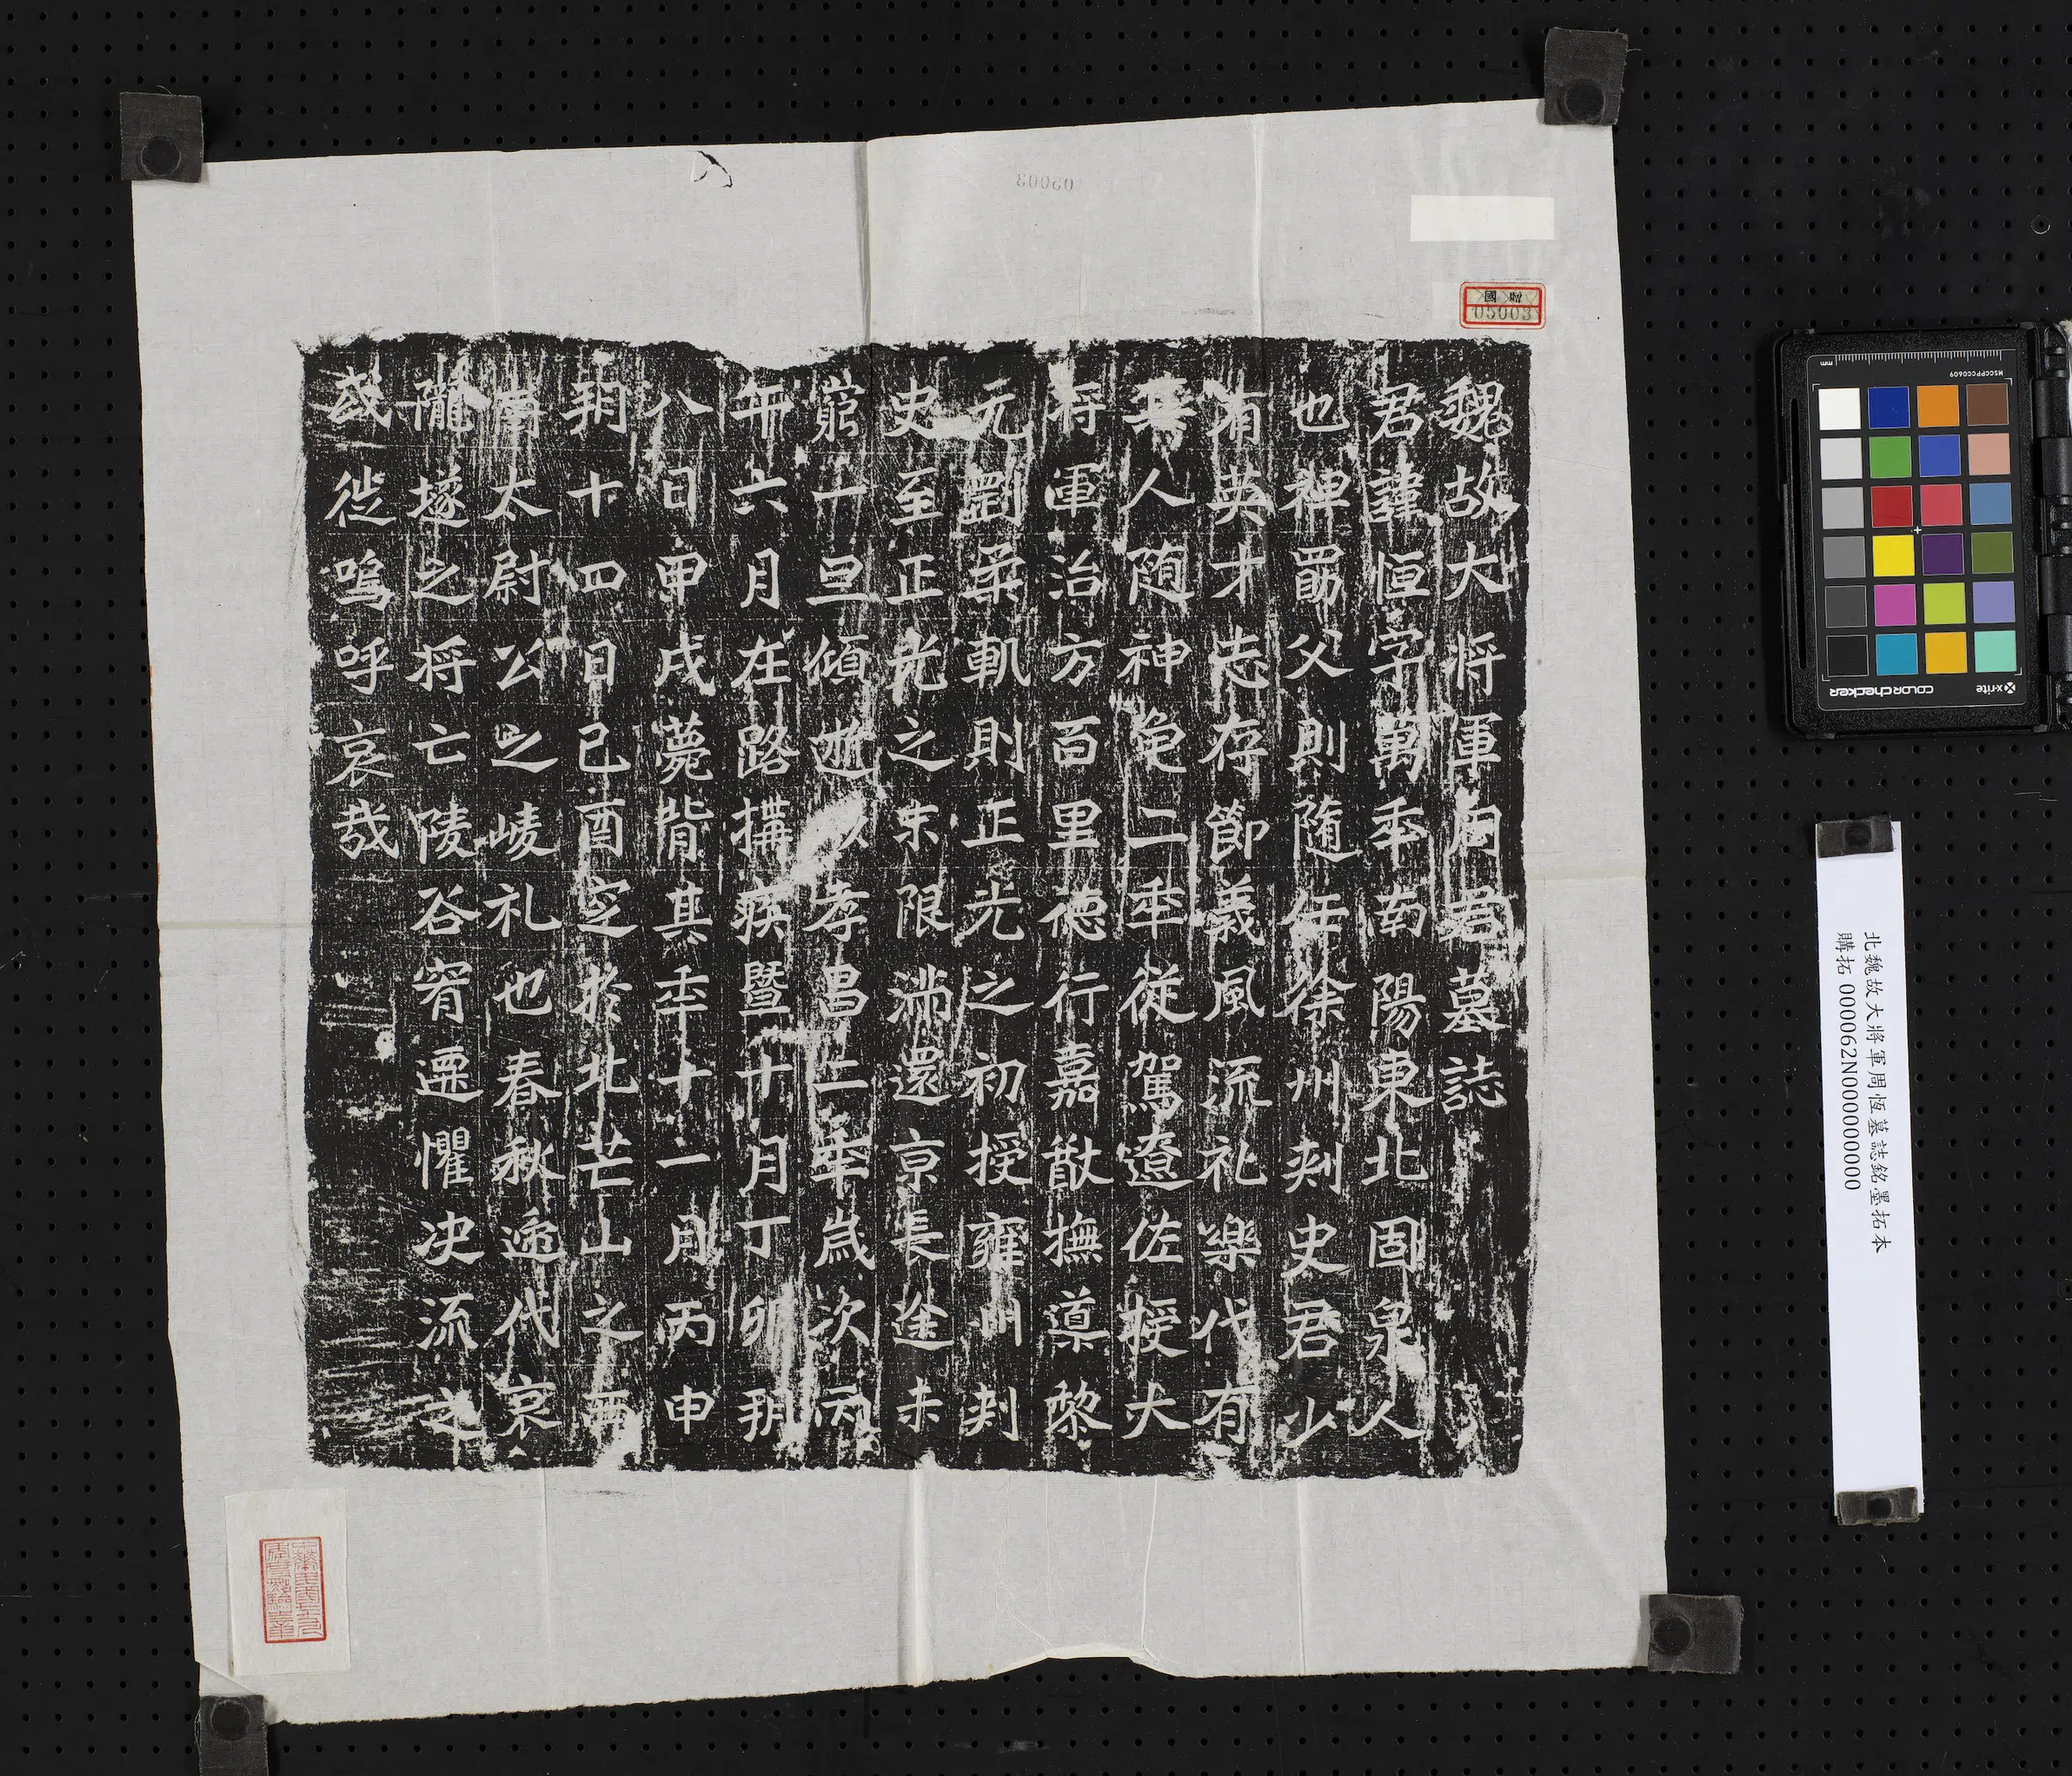 魏故大将軍周君墓誌
君諱恒字萬秊南陽東北固泉人
也裨勗父則随任徐州刾史君少
有英才志存節義風流礼樂代有
其人随神龟二秊從駕遼佐授大
将軍治方百里德行嘉猷撫導黎
元剛柔軌則正光之初授雍州刾
史至正光之末限满還京長途未
窮一旦傾逝以孝昌二秊歲次丙
午六月在路搆疾暨十月丁卯朔
八日甲戌薨背其秊十一月丙申
朔十四日己酉窆於北芒山之西
太尉公之崚礼也春秋遞代哀
隴墜之将亡陵谷宥遷懼决流之
或從嗚呼哀哉
國贈
05003
05003
北魏故大將軍周恆墓誌銘墨拓本
購拓 000062N000000000
x-rite
colorchecker
MSCCPPCC0609
mm